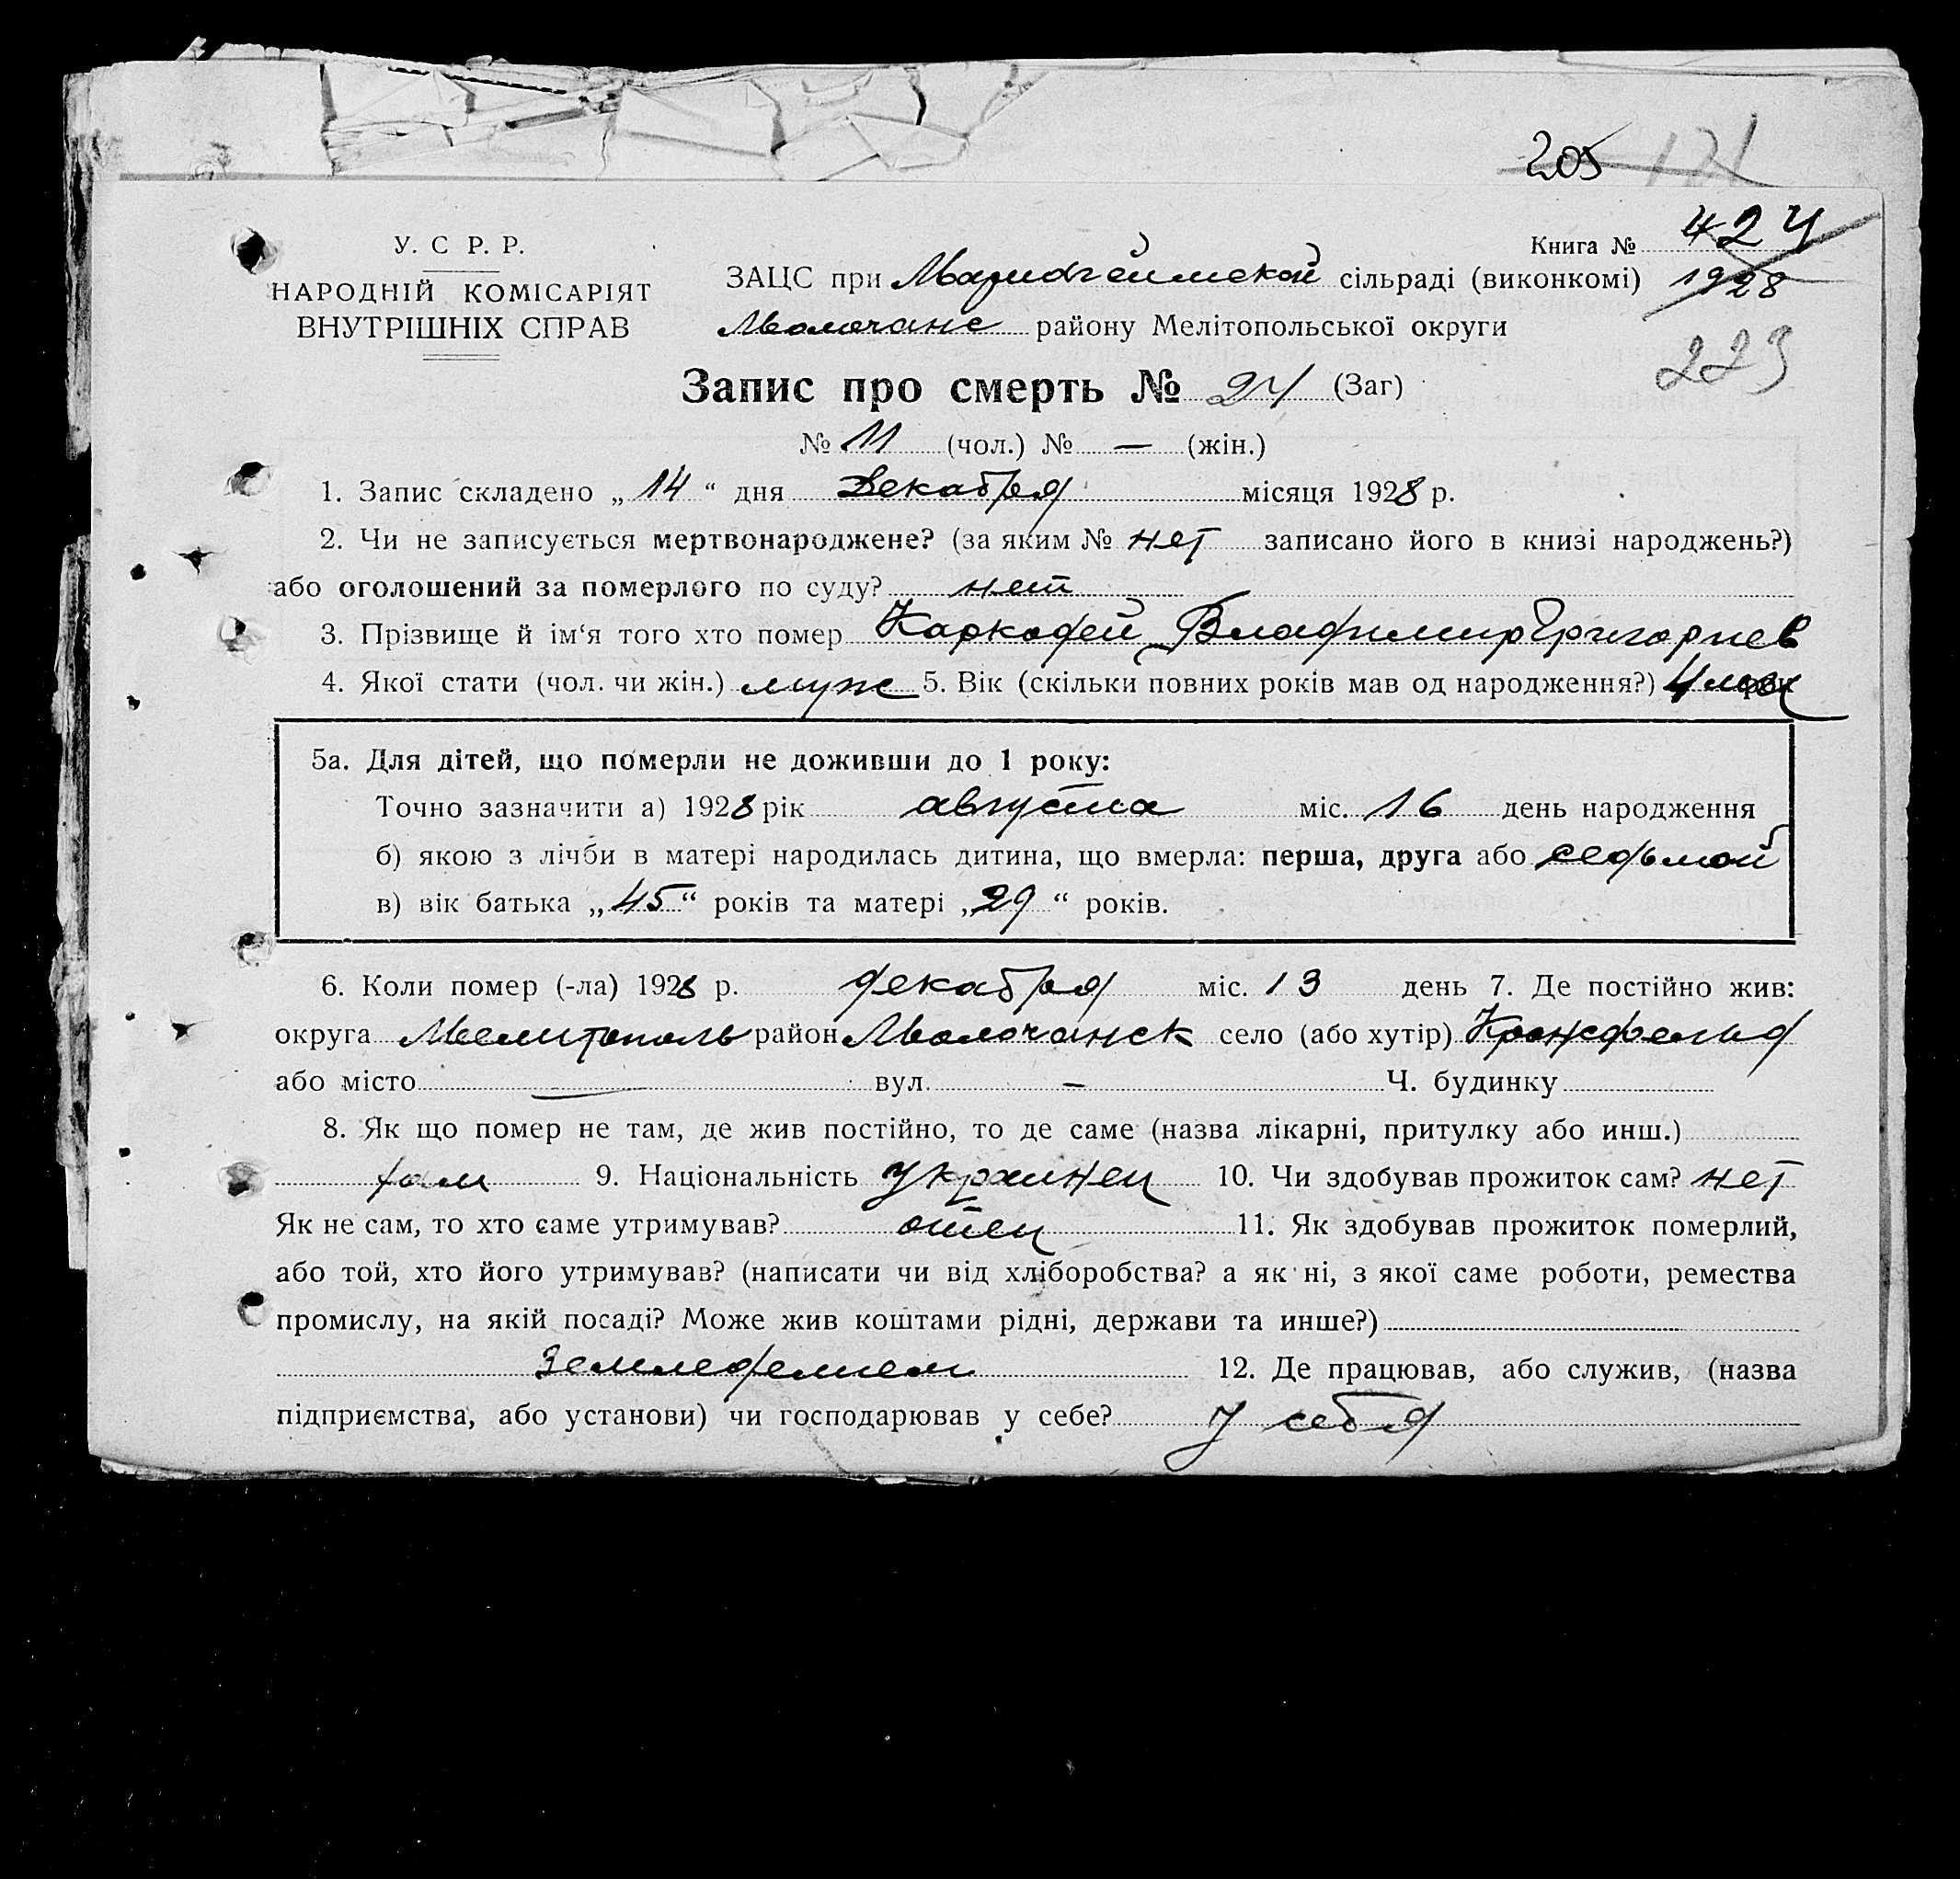 205 121
У. С Р. Р.
НАРОДНІЙ КОМІСАРІЯТ
ВНУТРІШНІХ СПРАВ
Книга № 424
ЗАЦС при сільраді (виконкомі) 1928
Молочанс району Мелітопольської округи
223
Запис про смерть № 24 (Заг)
№ 11 (чол.) № — (жін.)
1. Запис складено „ 14 “ дня Декабря місяця 1928 р.
2. Чи не записується мертвонароджене? (за яким № нет записано його в книзі народжень?)
або оголошений за померлого по суду? нет
3. Прізвище й ім‘я того хто помер Каркодей Владимир Григориев
4. Якої стати (чол. чи жін.) муж 5. Вік (скільки повних років мав од народження?) 4 мес
5а. Для дітей, що померли не доживши до 1 року:
Точно зазначити а) 1928 рік августа міс. 16 день народження
б) якою з лічби в матері народилась дитина, що вмерла: перша, друга або седьмой
в) вік батька „ 45 “ років та матері „ 29 “ років.
6. Коли помер (-ла) 1928 р. декабря міс. 13 день 7. Де постійно жив:
округа Мелитополь район Молочанск село (або хутір)
або місто — вул. — Ч. будинку
8. Як що помер не там, де жив постійно, то де саме (назва лікарні, притулку або инш.)
там 9. Національність Украинец 10. Чи здобував прожиток сам? нет
Як не сам, то хто саме утримував? отец 11. Як здобував прожиток померлий,
або той, хто його утримував? (написати чи від хліборобства? а як ні, з якої саме роботи, ремества
промислу, на якій посаді? Може жив коштами рідні, держави та инше?)
Земледелием 12. Де працював, або служив, (назва
підприємства, або установи) чи господарював у себе? у себя